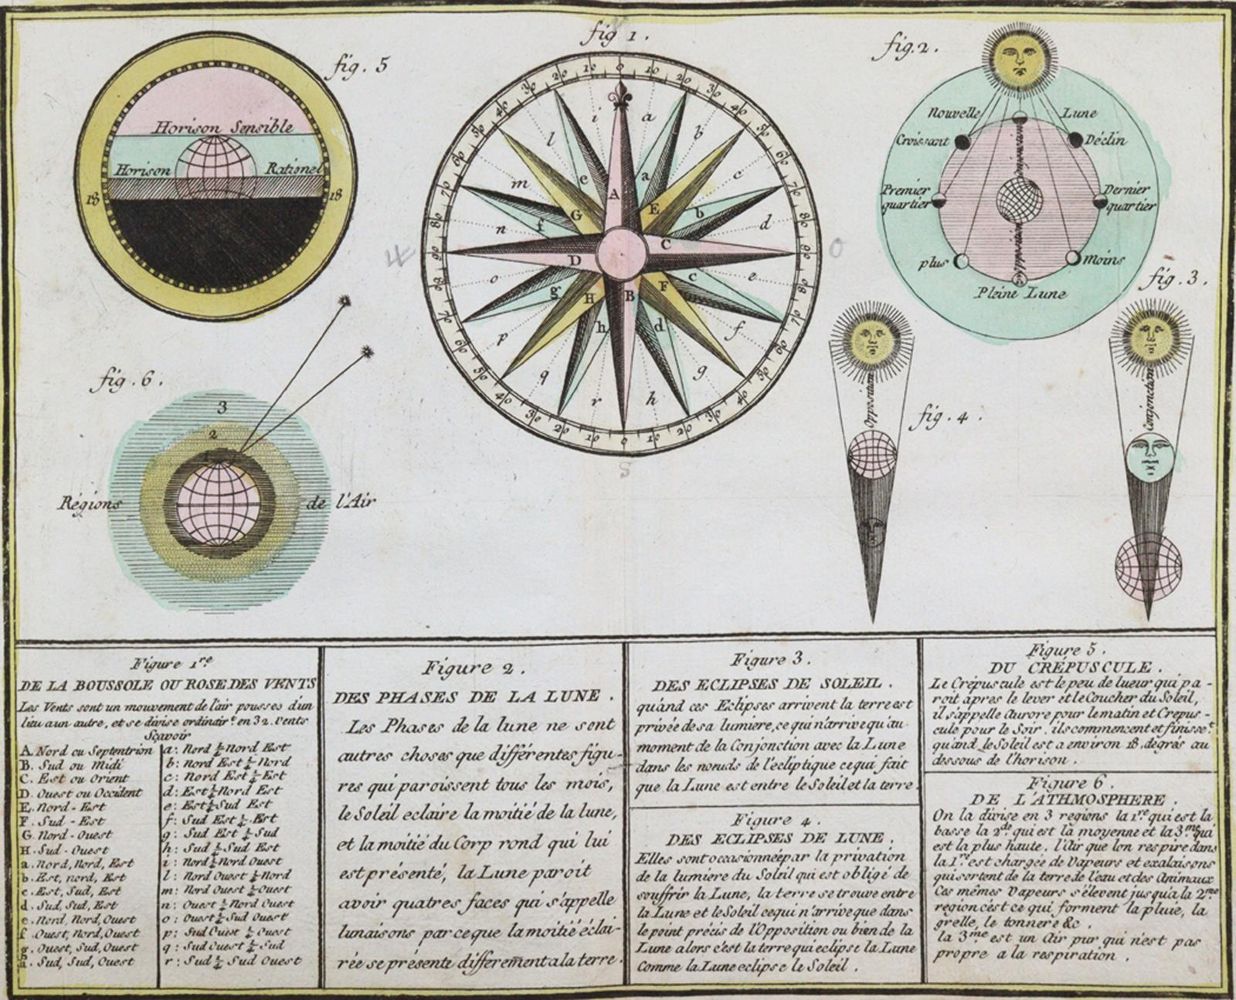 fig. 5
Horison Sensible
Horison Rationel
18
18
fig. 1.
A
B
C
D
E
F
G
H
a
b
c
d
e
f
g
h
a
b
c
d
e
f
g
h
i
l
m
n
o
p
q
r
O
S
fig. 2.
Nouvelle Lune
Croissant
Déclin
Premier
quartier
Dernier
quartier
plus
Moins
Pleine Lune
fig. 3.
Conjonction
fig. 4.
Opposition
fig. 6.
3
2
Régions de l'Air
Figure 1re
DE LA BOUSSOLE OU ROSE DES VENTS
Les Vents sont un mouvement de l'air pousses d'un
lieu a un autre, et se divise ordinairt. en 32. vents
Scavoir
A. Nord ou Septentrion
B. Sud ou Midi
C. Est ou Orient
D. Ouest ou Occident
E. Nord - Est
F. Sud - Est
G. Nord - Ouest
H. Sud - Ouest
a. Nord, Nord, Est
b. Est, nord, Est
c. Est, Sud, Est
d. Sud, Sud, Est
e. Nord, Nord, Ouest
f. Ouest, Nord, Ouest
g. Ouest, Sud, Ouest
h. Sud, Sud, Ouest
a: Nord ¼ Nord Est
b: Nord Est ¼ Nord
c: Nord Est ¼ Est
d: Est ¼ Nord Est
e: Est ¼ Sud Est
f: Sud Est ¼ Est
g: Sud Est ¼ Sud
h: Sud ¼ Sud Est
i: Nord ¼ Nord Ouest
l: Nord Ouest ¼ Nord
m: Nord Ouest ¼ Ouest
n: Ouest ¼ Nord Ouest
o: Ouest ¼ Sud Ouest
p: Sud Ouest ¼ Ouest
q: Sud Ouest ¼ Sud
r: Sud ¼ Sud Ouest
Figure 2.
DES PHASES DE LA LUNE.
Les Phases de la lune ne sont
autres choses que différentes figu-
res qui paroissent tous les mois,
le Soleil eclaire la moitié de la lune,
et la moitié du Corp rond qui lui
est présenté, la Lune paroit
avoir quatres faces qui s'appelle
lunaisons par ce que la moitié éclai-
rée se présente differement a la terre.
Figure 3.
DES ECLIPSES DE SOLEIL.
quand ces Eclipses arrivent la terre est
privée de sa lumiere, ce qui n'arrive qu'au
moment de la Conjonction avec la Lune
dans les nœuds de l'ecliptique ce qui fait
que la Lune est entre le Soleil et la terre.
Figure 4.
DES ECLIPSES DE LUNE.
Elles sont occasionnée par la privation
de la lumiere du Soleil qui est obligé de
souffrir la Lune, la terre se trouve entre
la Lune et le Soleil ce qui n'arrive que dans
le point précis de l'Opposition ou bien de la
Lune alors c'est la terre qui eclipse la Lune
Comme la Lune eclipse le Soleil.
Figure 5.
DU CRÉPUSCULE.
Le Crépuscule est le peu de lueur qui pa-
roit après le lever et le Coucher du Soleil,
il s'appelle Aurore pour le matin et Crepus-
cule pour le Soir, ils commencent et finisset.
quand le Soleil est a environ 18. degrés au
dessous de l'horison.
Figure 6.
DE L'ATHMOSPHERE.
On la divise en 3 regions la 1re qui est la
basse la 2de qui est la moyenne et la 3me qui
est la plus haute. l'Air que l'on respire dans
la 1re est chargée de Vapeurs et exalaisons
qui sortent de la terre de l'eau et des Animaux
Ces mêmes Vapeurs s'elevent jusqu'a la 2me
region c'est ce qui forment la pluie, la
grelle, le tonnere &c.
la 3me est un Air pur qui n'est pas
propre a la respiration.